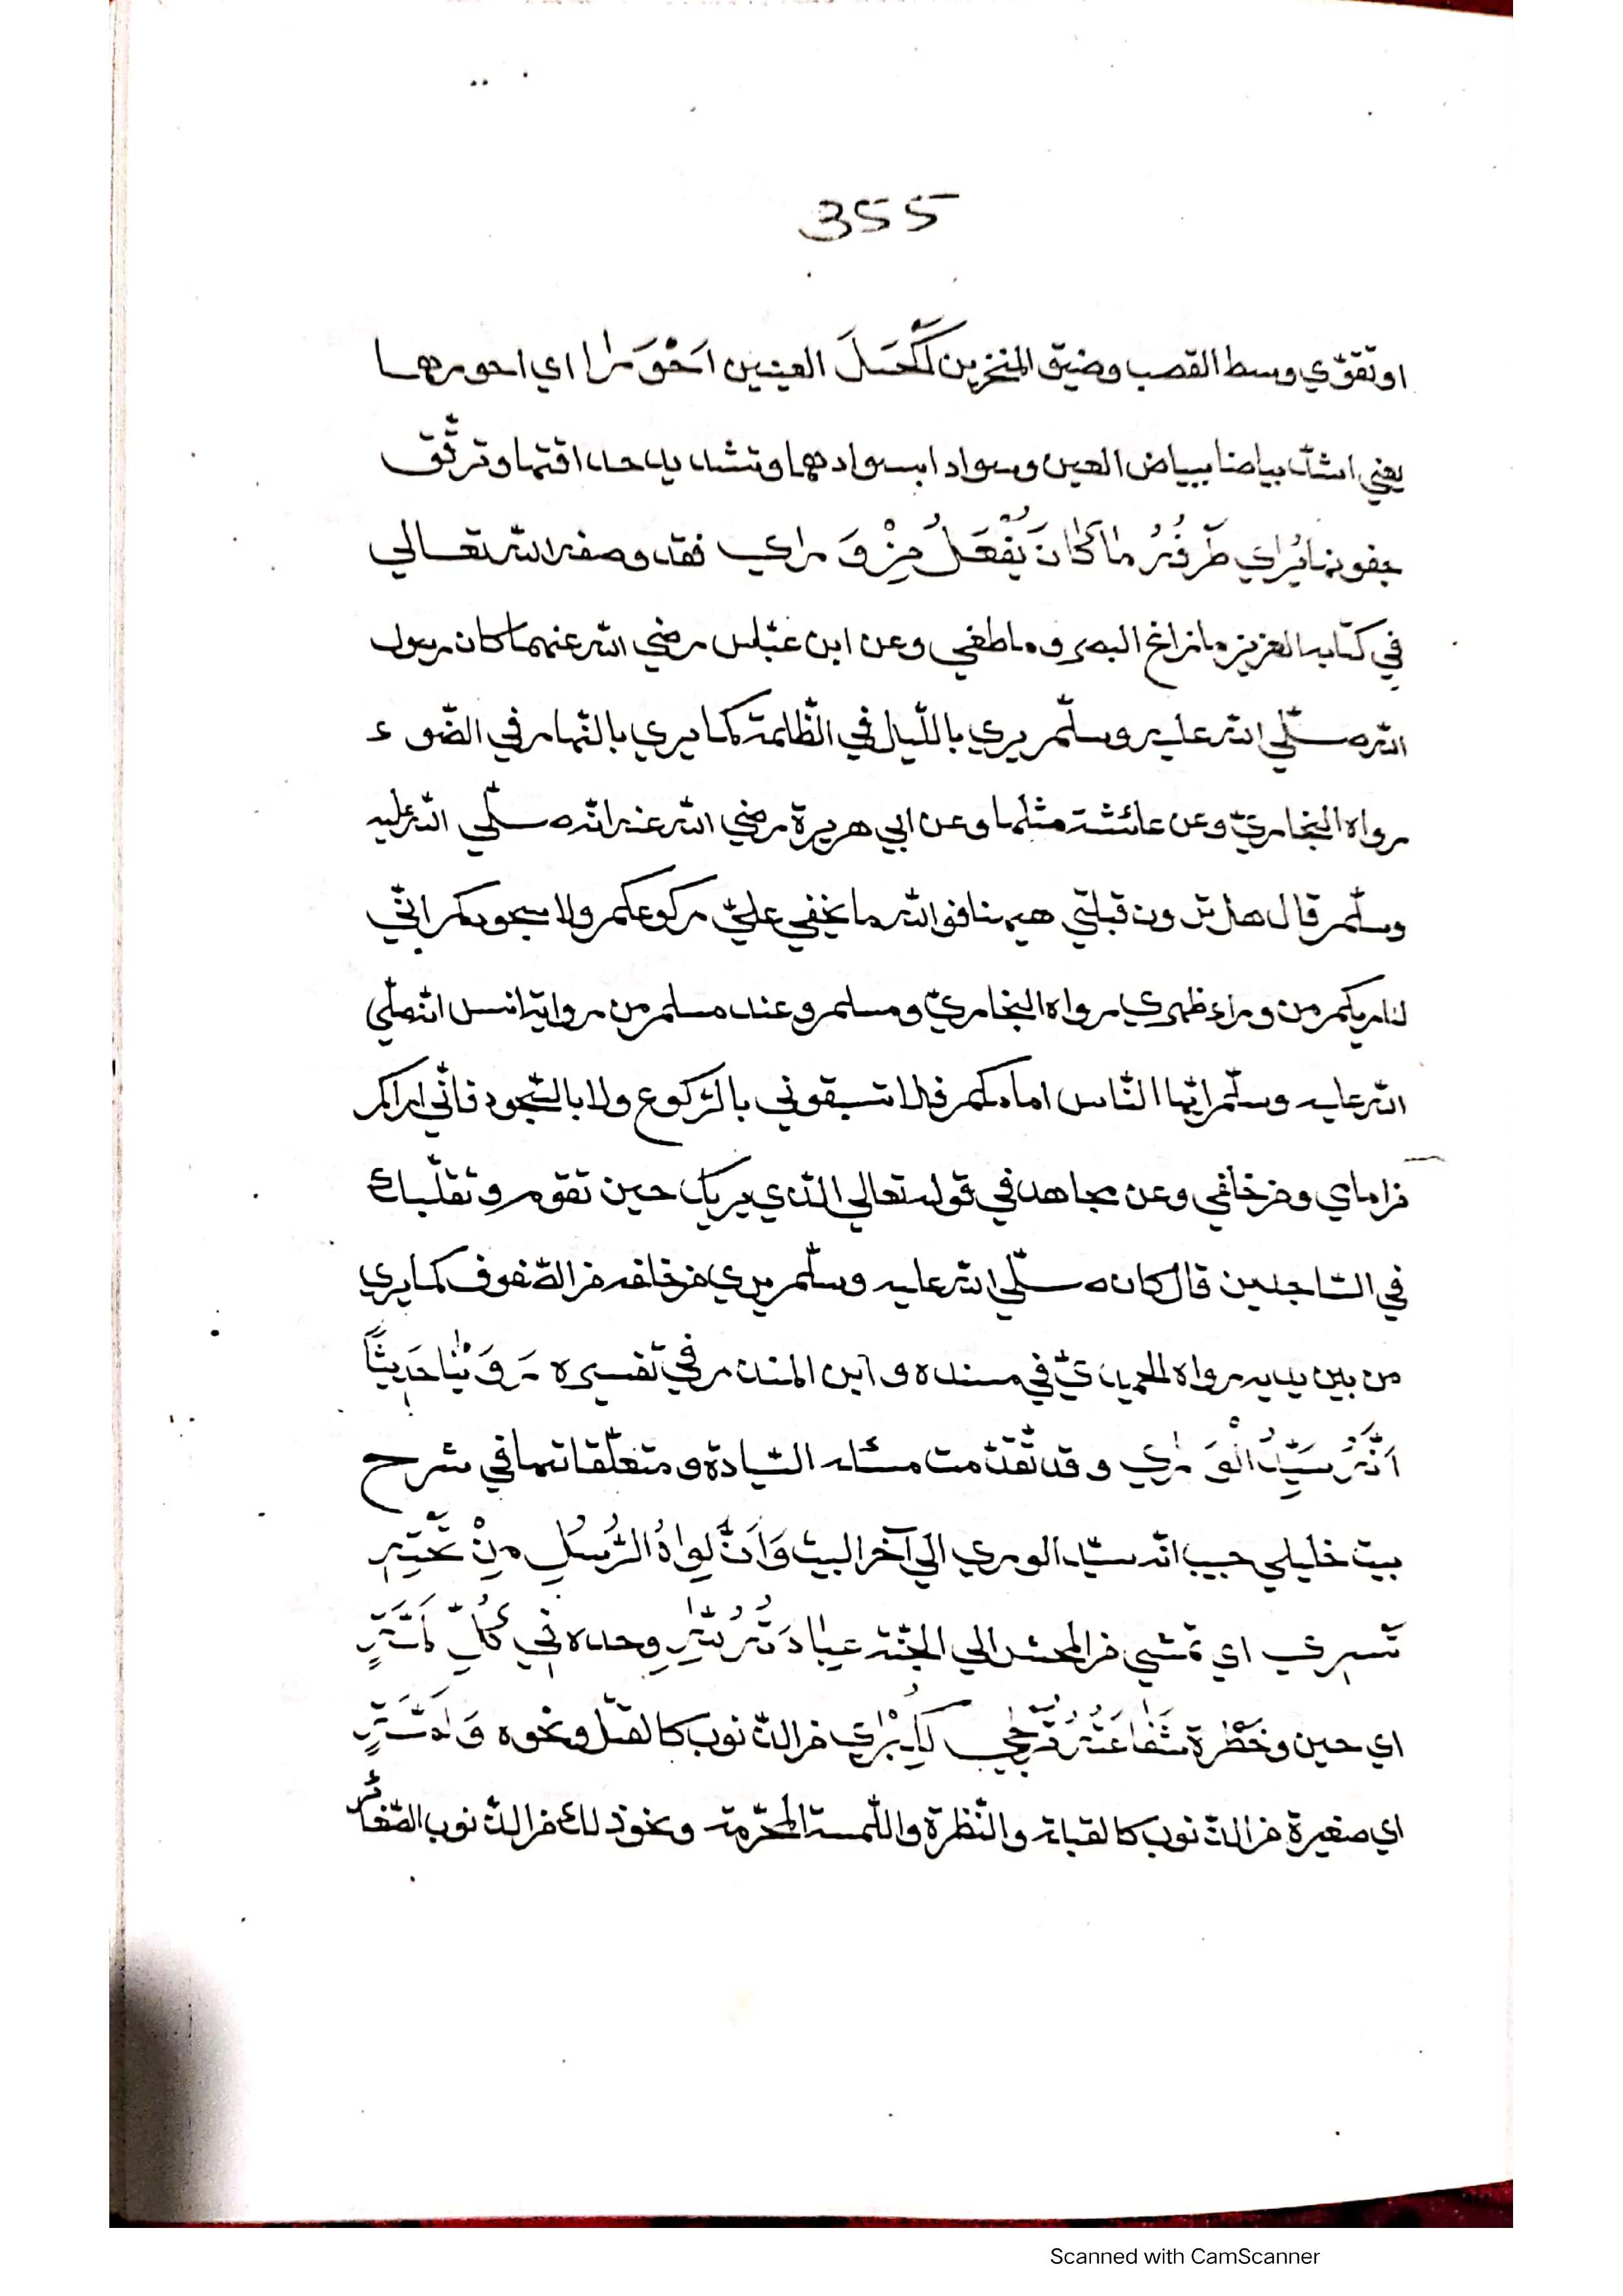 355
او تقوّي وسط القصب وضيق المنخرين اَكْحَلَ العينين اَحْوَرَا اي احورهما
يعني اشدّ بياضا ببياض العين وسوادا بسوادهما وتشديد حداقتها وترقّق
جفونها يُرٰي طَرفُهُ مَا كَانَ يُفْعَلُ مِنْ وَرٰاي فقد وصفه الله تعالي
في كتابه العزيز ما زاغ البصر وما طغي وعن ابن عبّاس رضي الله عنهما كان رسول
الله صلّي الله عليه وسلّم يري بالليل في الظّلمة كما يري بالنّهار في الضّوء
رواه البخاريّ وعن عائشة مثلها وعن ابي هريرة رضي الله عنه انّه صلّي الله عليه
وسلّم قال هل ترون قبلتي هيهنا فوالله ما يخفي عليّ ركوعكم ولا سجودكم انّي
لاريكم من وراء ظهري رواه البخاريّ ومسلم وعند مسلم من رواية انس انّه صلّي
الله عليه وسلّم ايّها النّاس امامكم فلا تسبقوني بالرّكوع ولا بالسّجود فانّي اراكم
من امامي ومن خلفي وعن مجاهد في قوله تعالي الّذي يريك حين تقوم وتقلّبك
في السّاجدين قال كان صلّي الله عليه وسلّم يري من خلفه من الصّفوف كما يري
من بين يديه رواه الحميديّ في مسنده وابن المنذر في تفسيره رَوَيْنَا حَدِيثًا
اَنَّهُ سَيِّدُ الْوَرٰي وقد تقدّمت مسئلة السّيادة ومتعلّقاتها في شرح
بيت خليلي حبيب الله سيّد الوري الي آخر البيت وَاَنَّ لِوَاهُ الرُّسُلُ مِنْ تَحْتِهِ
تَسِرِي اي تمشي من المحشر الي الجنّة عِبَادَتُهُ لِلّٰهِ وحده فِي كُلِّ لَمْسَةٍ
اي حين وخَطْرة شَفَاعَتُهُ تُرْجٰي لِكُبْرٰي من الذّنوب كالقتل ونحوه وَلَمْسَةٍ
اي صغيرة من الذّنوب كالقبلة والنّظرة واللّمسة المحرّمة ونحو ذلك من الذّنوب الصّغائر
Scanned with CamScanner